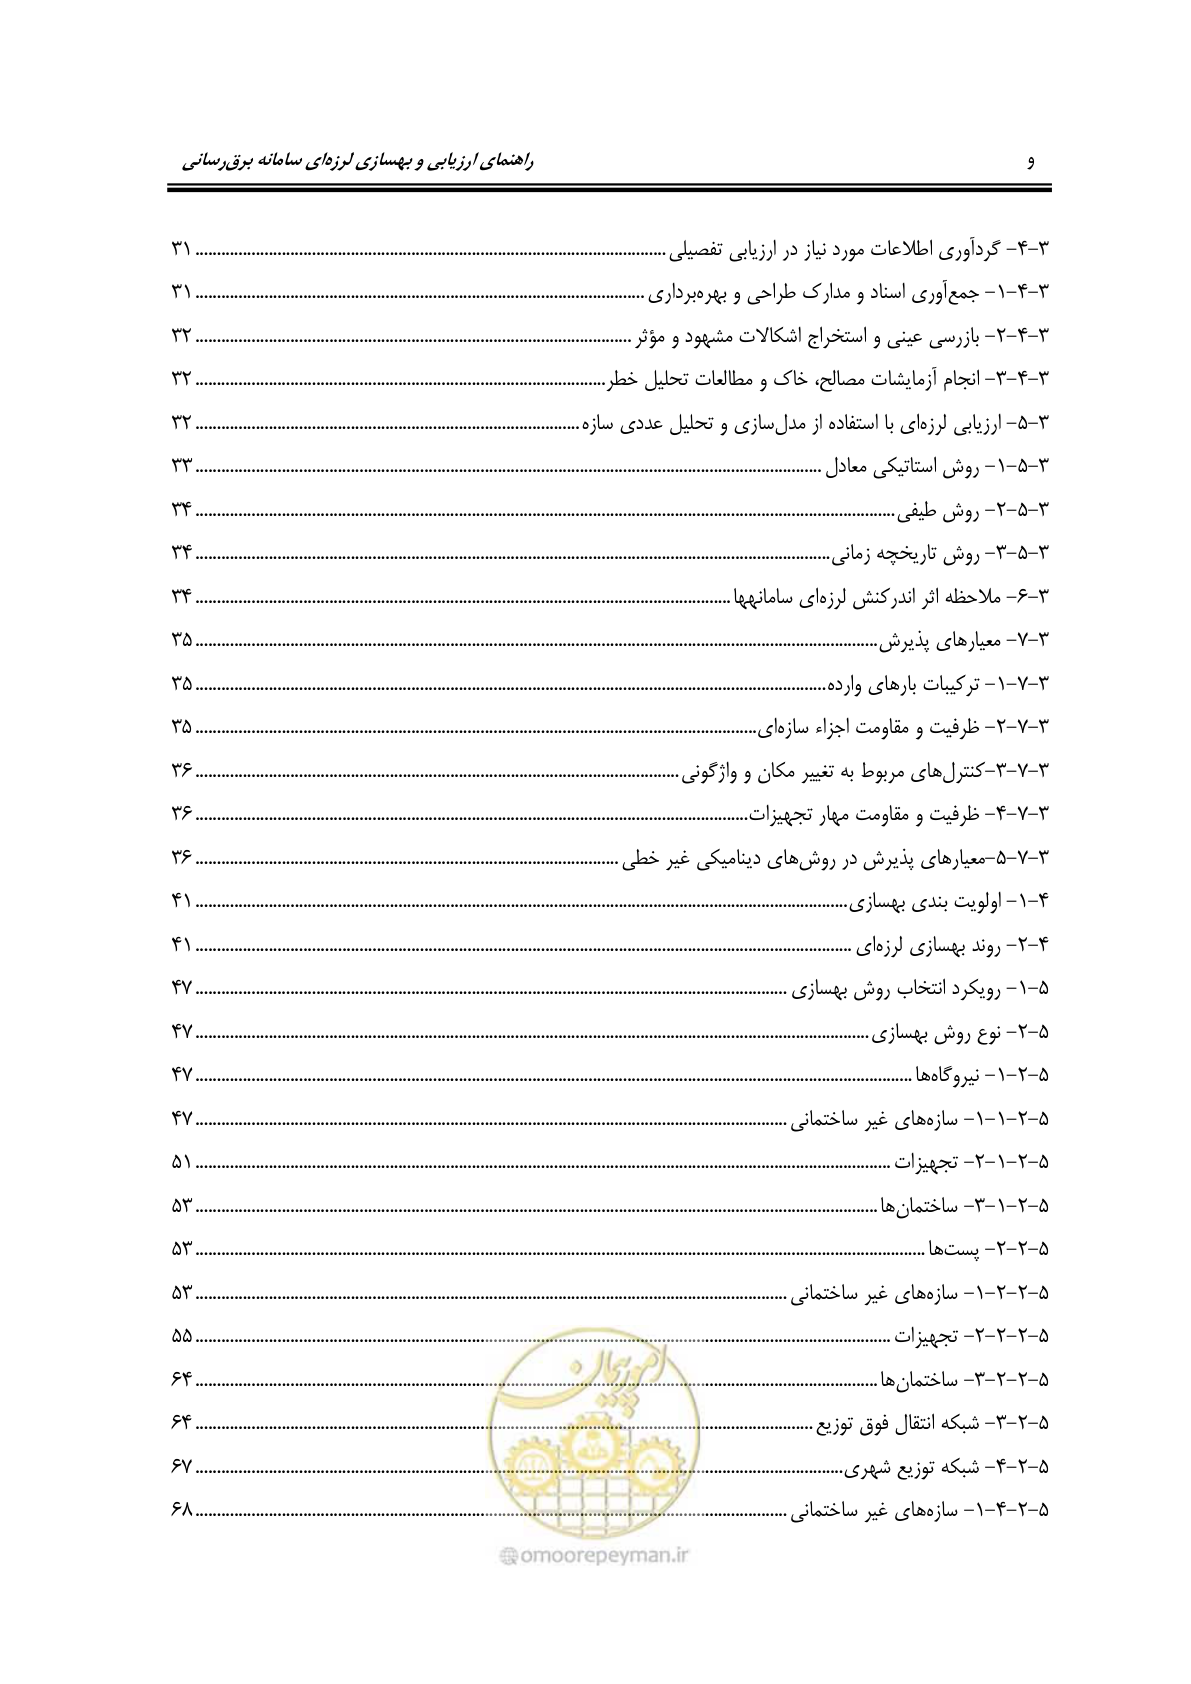 و راهنمای ارزیابی و بهسازی لرزه‌ای سامانه برق‌رسانی
۳-۴- گردآوری اطلاعات مورد نیاز در ارزیابی تفصیلی ........ ۳۱
۳-۴-۱- جمع‌آوری اسناد و مدارک طراحی و بهره‌برداری ........ ۳۱
۳-۴-۲- بازرسی عینی و استخراج اشکالات مشهود و مؤثر ........ ۳۲
۳-۴-۳- انجام آزمایشات مصالح، خاک و مطالعات تحلیل خطر ........ ۳۲
۳-۵- ارزیابی لرزه‌ای با استفاده از مدل‌سازی و تحلیل عددی سازه ........ ۳۲
۳-۵-۱- روش استاتیکی معادل ........ ۳۳
۳-۵-۲- روش طیفی ........ ۳۴
۳-۵-۳- روش تاریخچه زمانی ........ ۳۴
۳-۶- ملاحظه اثر اندرکنش لرزه‌ای سامانهها ........ ۳۴
۳-۷- معیارهای پذیرش ........ ۳۵
۳-۷-۱- ترکیبات بارهای وارده ........ ۳۵
۳-۷-۲- ظرفیت و مقاومت اجزاء سازه‌ای ........ ۳۵
۳-۷-۳-کنترل‌های مربوط به تغییر مکان و واژگونی ........ ۳۶
۳-۷-۴- ظرفیت و مقاومت مهار تجهیزات ........ ۳۶
۳-۷-۵-معیارهای پذیرش در روش‌های دینامیکی غیر خطی ........ ۳۶
۴-۱- اولویت بندی بهسازی ........ ۴۱
۴-۲- روند بهسازی لرزه‌ای ........ ۴۱
۵-۱- رویکرد انتخاب روش بهسازی ........ ۴۷
۵-۲- نوع روش بهسازی ........ ۴۷
۵-۲-۱- نیروگاه‌ها ........ ۴۷
۵-۲-۱-۱- سازه‌های غیر ساختمانی ........ ۴۷
۵-۲-۱-۲- تجهیزات ........ ۵۱
۵-۲-۱-۳- ساختمان‌ها ........ ۵۳
۵-۲-۲- پست‌ها ........ ۵۳
۵-۲-۲-۱- سازه‌های غیر ساختمانی ........ ۵۳
۵-۲-۲-۲- تجهیزات ........ ۵۵
۵-۲-۲-۳- ساختمان‌ها ........ ۶۴
۵-۲-۳- شبکه انتقال فوق توزیع ........ ۶۴
۵-۲-۴- شبکه توزیع شهری ........ ۶۷
۵-۲-۴-۱- سازه‌های غیر ساختمانی ........ ۶۸
امور پیمان
@omoorepeyman.ir